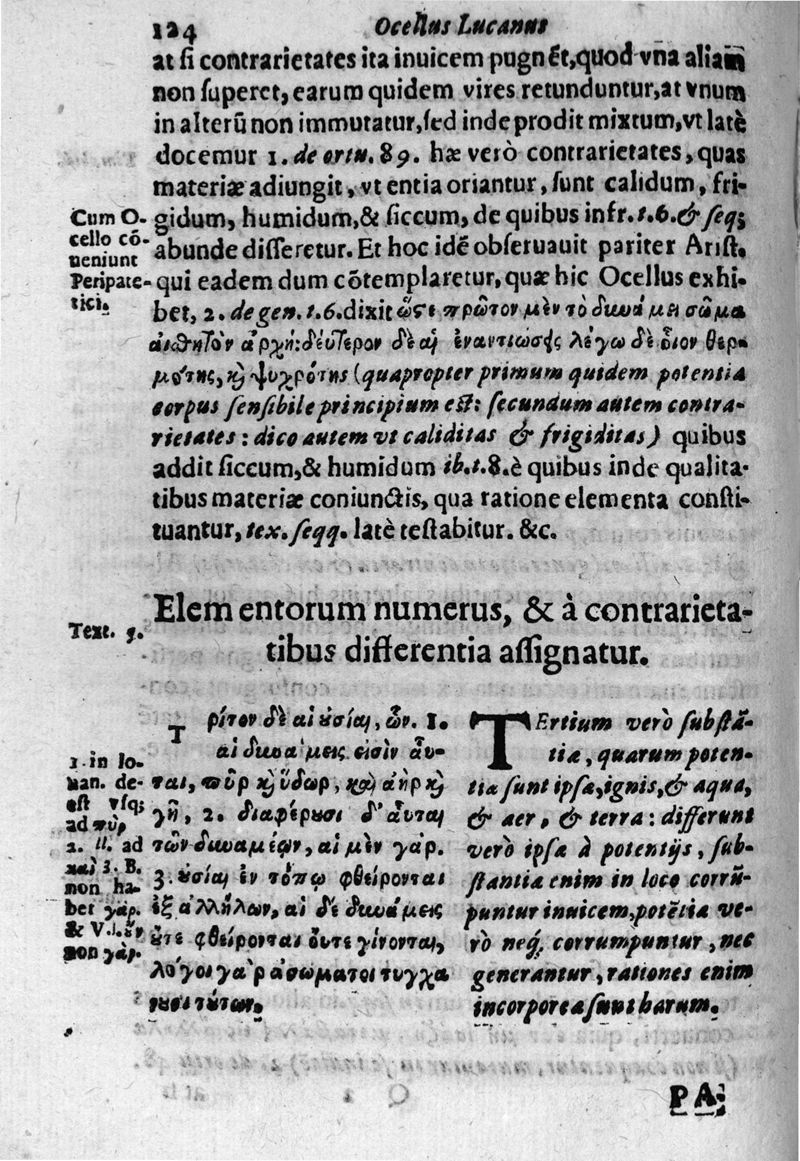 124 Ocellus Lucanus
at ſi contrarietates ita inuicem pugnẽt, quod vna aliam
non ſuperet, earum quidem vires retunduntur, at vnum
in alterũ non immutatur, ſed inde prodit mixtum, vt latè
docemur 1. de ortu. 89. hæ verò contrarietates, quas
materiæ adiungit, vt entia oriantur, ſunt calidum, fri-
gidum, humidum, & ſiccum, de quibus infr. t. 6. & ſeq;
abunde diſſeretur. Et hoc idẽ obſeruauit pariter Ariſt.
qui eadem dum cõtemplaretur, quæ hic Ocellus exhi-
bet, 2. de gen. t. 6. dixit ὥςε πρῶτον μὲν τὸ δυνάμει σῶμα
αἰσθητὸν ἀρχή: δεύτερον δὲ αἱ ἐναντιώσεις λέγω δὲ οἷον θερ-
μότης, κ̀ ψυχρότης (quapropter primum quidem potentia
corpus ſenſibile principium eſt: ſecundum autem contra-
rietates: dico autem vt caliditas & frigiditas) quibus
addit ſiccum, & humidum ib. t. 8. è quibus inde qualita-
tibus materiæ coniunctis, qua ratione elementa conſti-
tuantur, tex. ſeqq. latè teſtabitur. &c.
Cum O-
cello cõ-
ueniunt
Peripate-
tici.
Elem entorum numerus, & à contrarieta-
tibus differentia aſſignatur.
Text. 5.
Τρίτον δὲ αἱ ȣ̓σίαι, ὧν. 1.
αἱ δυνάμεις εἰσὶν αὗ-
ται, πῦρ κ̀ ὕδωρ, καὶ ἀὴρ κ̀
γῆ, 2. διαφέρȣσι δ' αὗται
τῶν δυναμέων, αἱ μὲν γάρ.
3. ȣ̓σίαι ἐν τόπῳ φθείρονται
ἐξ ἀλλήλων, αἱ δὲ δυνάμεις
ȣ̓́τε φθείρονται οὔτε γίνονται,
λόγοι γὰρ ἀσώματοι τυγχα
νȣσι τȣ́των.
1. in Io-
uan. de-
eſt vſq;
ad πῦρ
2. ll. ad
καὶ 3. B.
non ha-
bet γάρ.
& V. l. οὖν
non γάρ.
TErtium verò ſubſtã-
tia, quarum poten-
tia ſunt ipſa, ignis, & aqua,
& aer, & terra: differunt
verò ipſa à potentijs, ſub-
ſtantia enim in loco corrũ-
puntur inuicem, potẽtia ve-
rò neq; corrumpuntur, nec
generantur, rationes enim
incorporea ſunt harum.
PA-